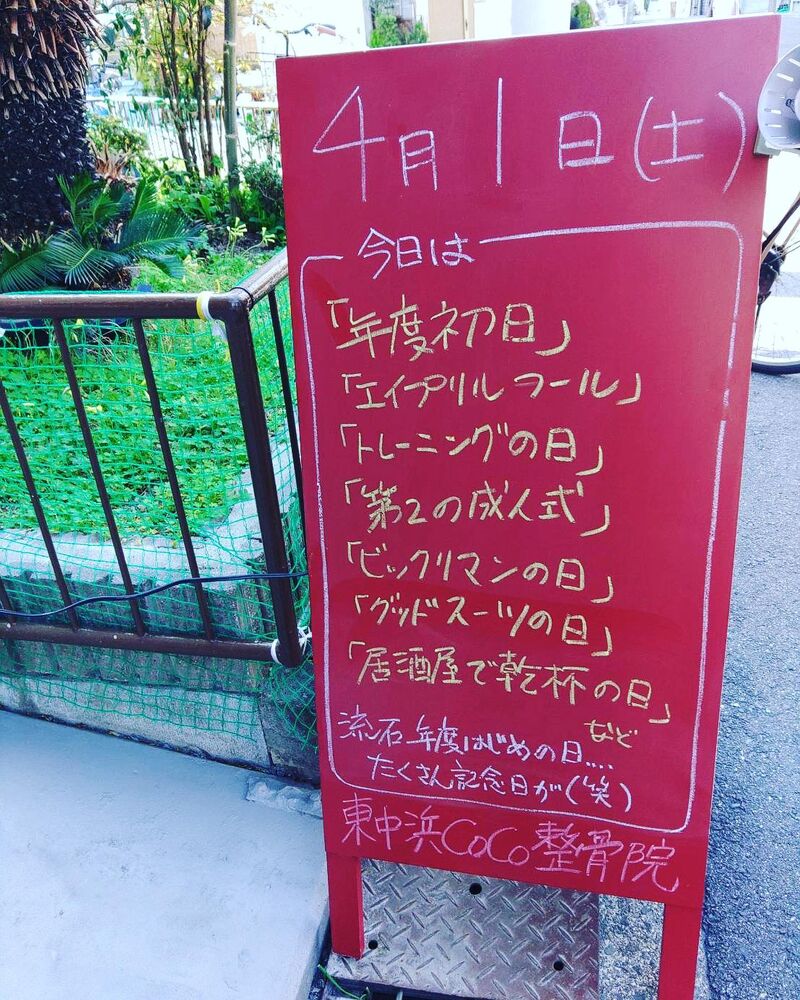 4月1日(土)
今日は
「年度初日」
「エイプリルフール」
「トレーニングの日」
「第2の成人式」
「ビックリマンの日」
「グッドスーツの日」
「居酒屋で乾杯の日」
など
流石年度はじめの日....
たくさん記念日が(笑)
東中浜CoCo整骨院